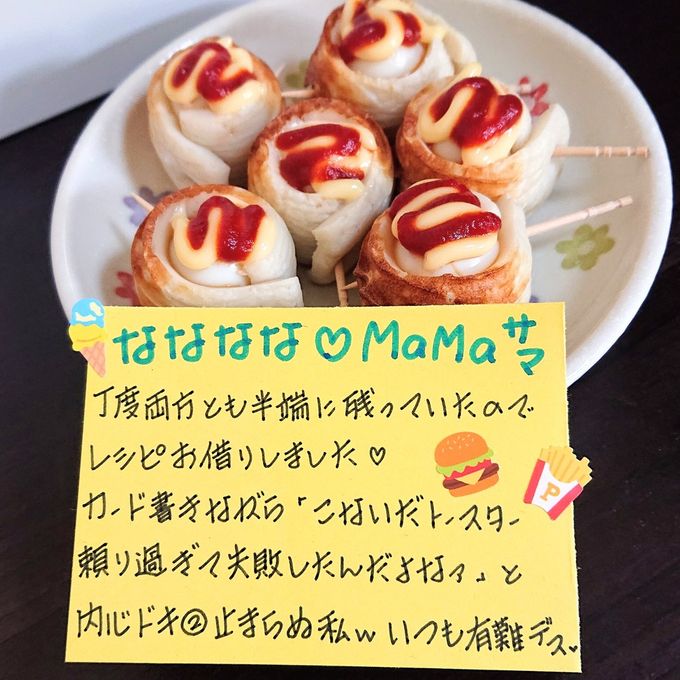 なななな♡MaMaサマ
丁度両方とも半端に残っていたので
レシピお借りしました♡
カード書きながら「こないだトースター
頼り過ぎて失敗したんだよなァ」と
内心ドキ②止まらぬ私w いつも有難デス♡
P